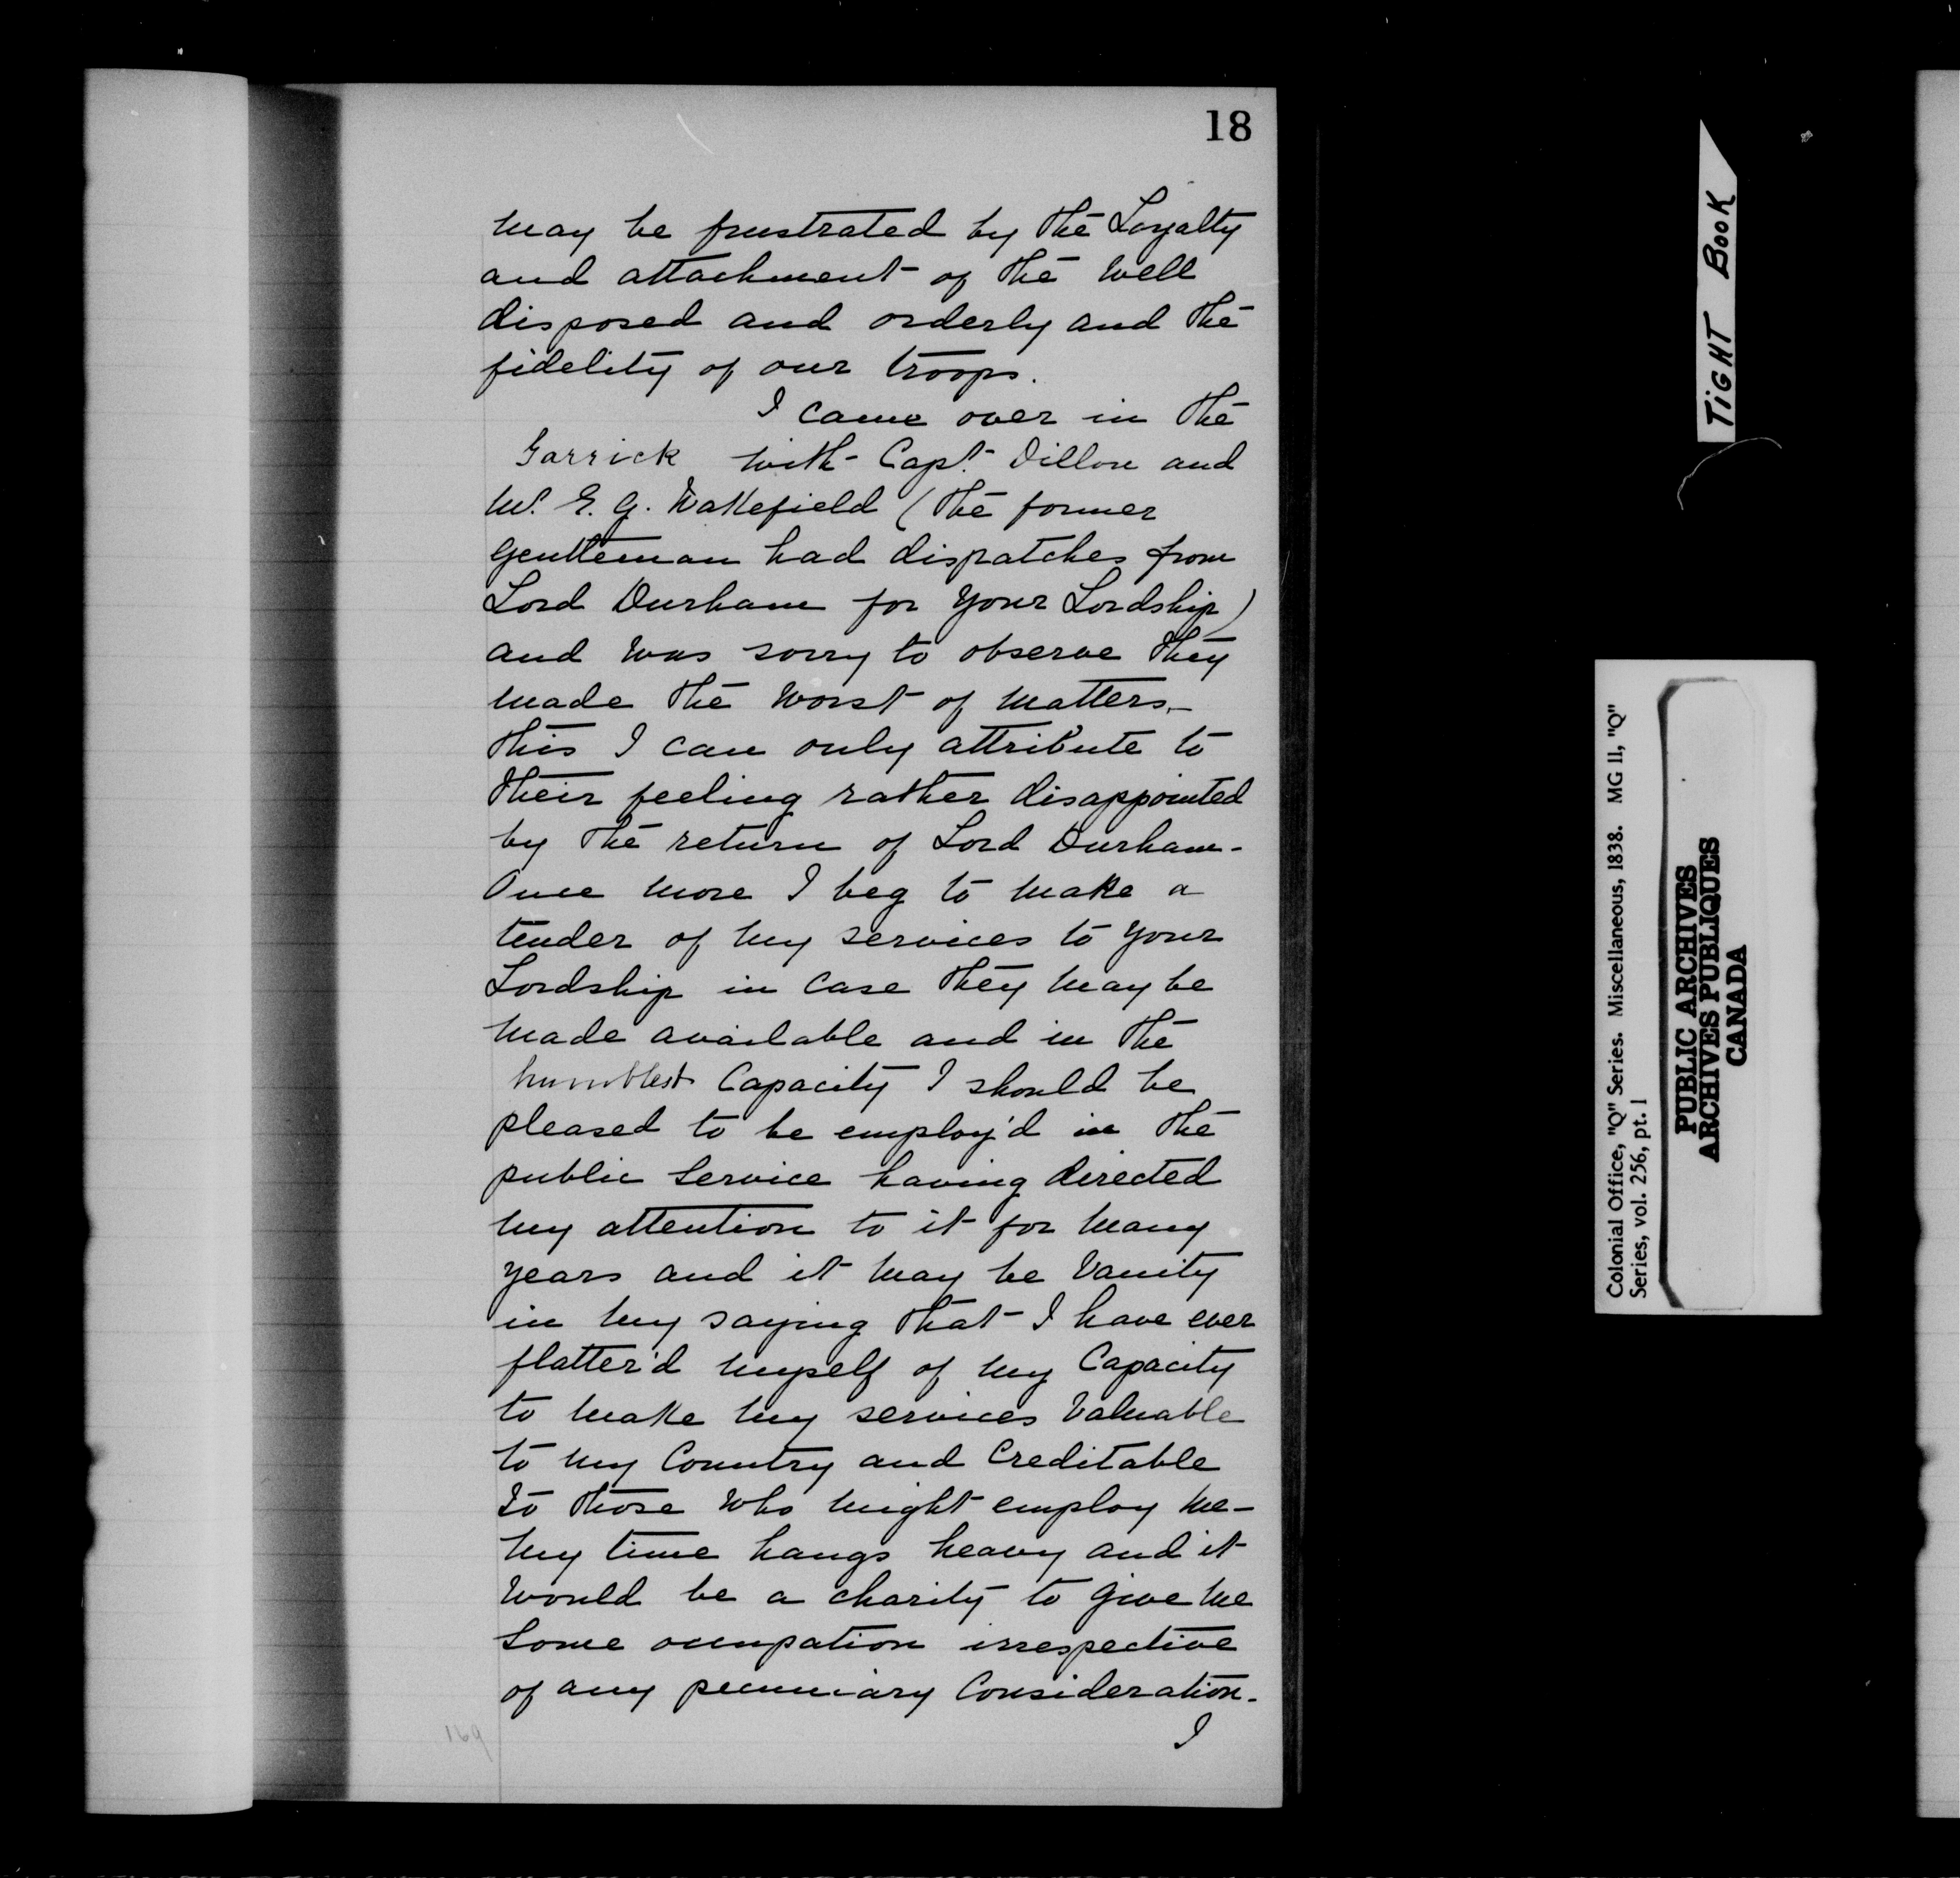 18
may be frustrated by the Loyalty
and attachment of the well
disposed and orderly and the
fidelity of our troops.
I came over in the
Garrick with Capt. Dillon and
Mr. E. G. Wakefield (the former
gentleman had dispatches from
Lord Durham for your Lordship)
and was sorry to observe they
made the worst of matters.-
this I can only attribute to
their feeling rather disappointed
by the return of Lord Durham-
Once more I beg to make a
tender of my services to your
Lordship in case they may be
made available and in the
humblest Capacity I should be
pleased to be employ'd in the
public service having directed
my attention to it for many
years and it may be Vanity
in my saying that I have ever
flatter'd myself of my Capacity
to make my services Valuable
to my Country and Creditable
to those who might employ me-
my time hangs heavy and it
would be a charity to give me
some occupation irrespective
of any pecuniary Consideration.
I
169
TIGHT BOOK
Colonial Office, "Q" Series. Miscellaneous, 1838. MG 11, "Q"
Series, vol. 256, pt. 1
PUBLIC ARCHIVES
ARCHIVES PUBLIQUES
CANADA